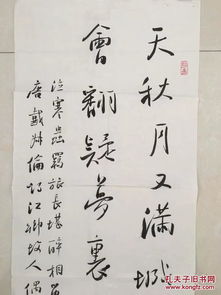 天秋月又滿城
會翻疑夢裏
泣寒蟲羈旅長堪醉相留
唐戴叔倫詩江鄉故人偶